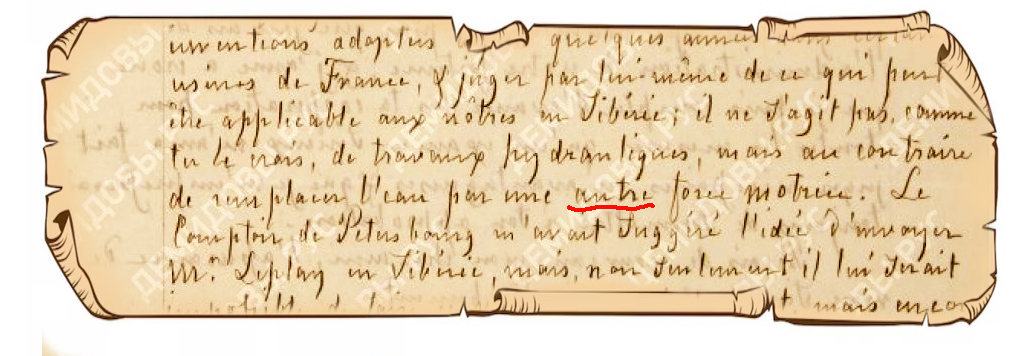 inventions adoptées quelques années dans certai
usines de France, & juger par lui-même de ce qui peut
être applicable aux nôtres en Sibérie; il ne s'agit pas, comme
tu le crois, de travaux hydrauliques, mais au contraire
de remplacer l'eau par une autre force motrice. Le
Comptoir de Pétersbourg m'avait suggéré l'idée d'envoyer
Mr. Leplay en Sibérie, mais, non seulement il lui serait
mais enco